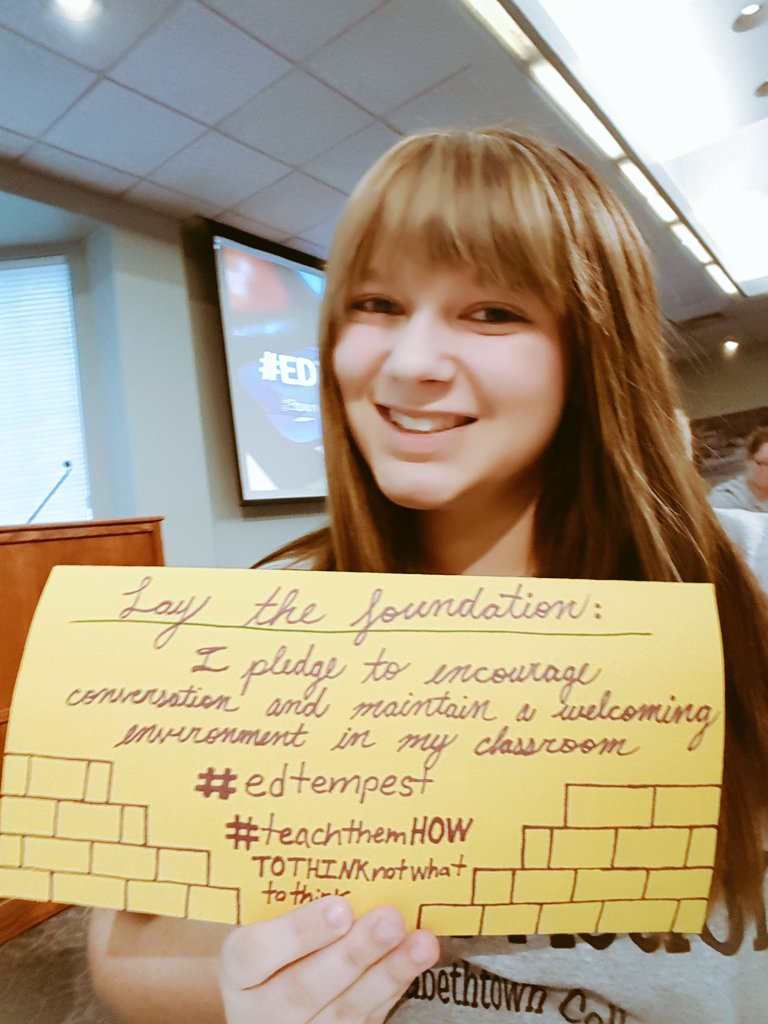 #ED
Lay the foundation:
I pledge to encourage
conversation and maintain a welcoming
environment in my classroom
#edtempest
#teachthemHOW
TOTHINKnotwhat
to think
abethtown Coll